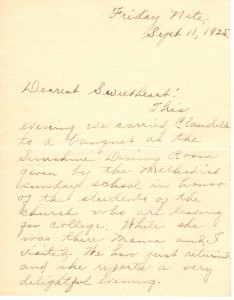 Friday Nite,
Sept 11, 1925.
Dearest Sweetheart!
This
evening we carried Claudille
to a banquet at the
Sunshine Dining Room
given by the Methodist
Sunday school in honor
of the students of the
church who are leaving
for college. While she
was there Mama and I
visited. We have just returned
and she reports a very
delightful evening.